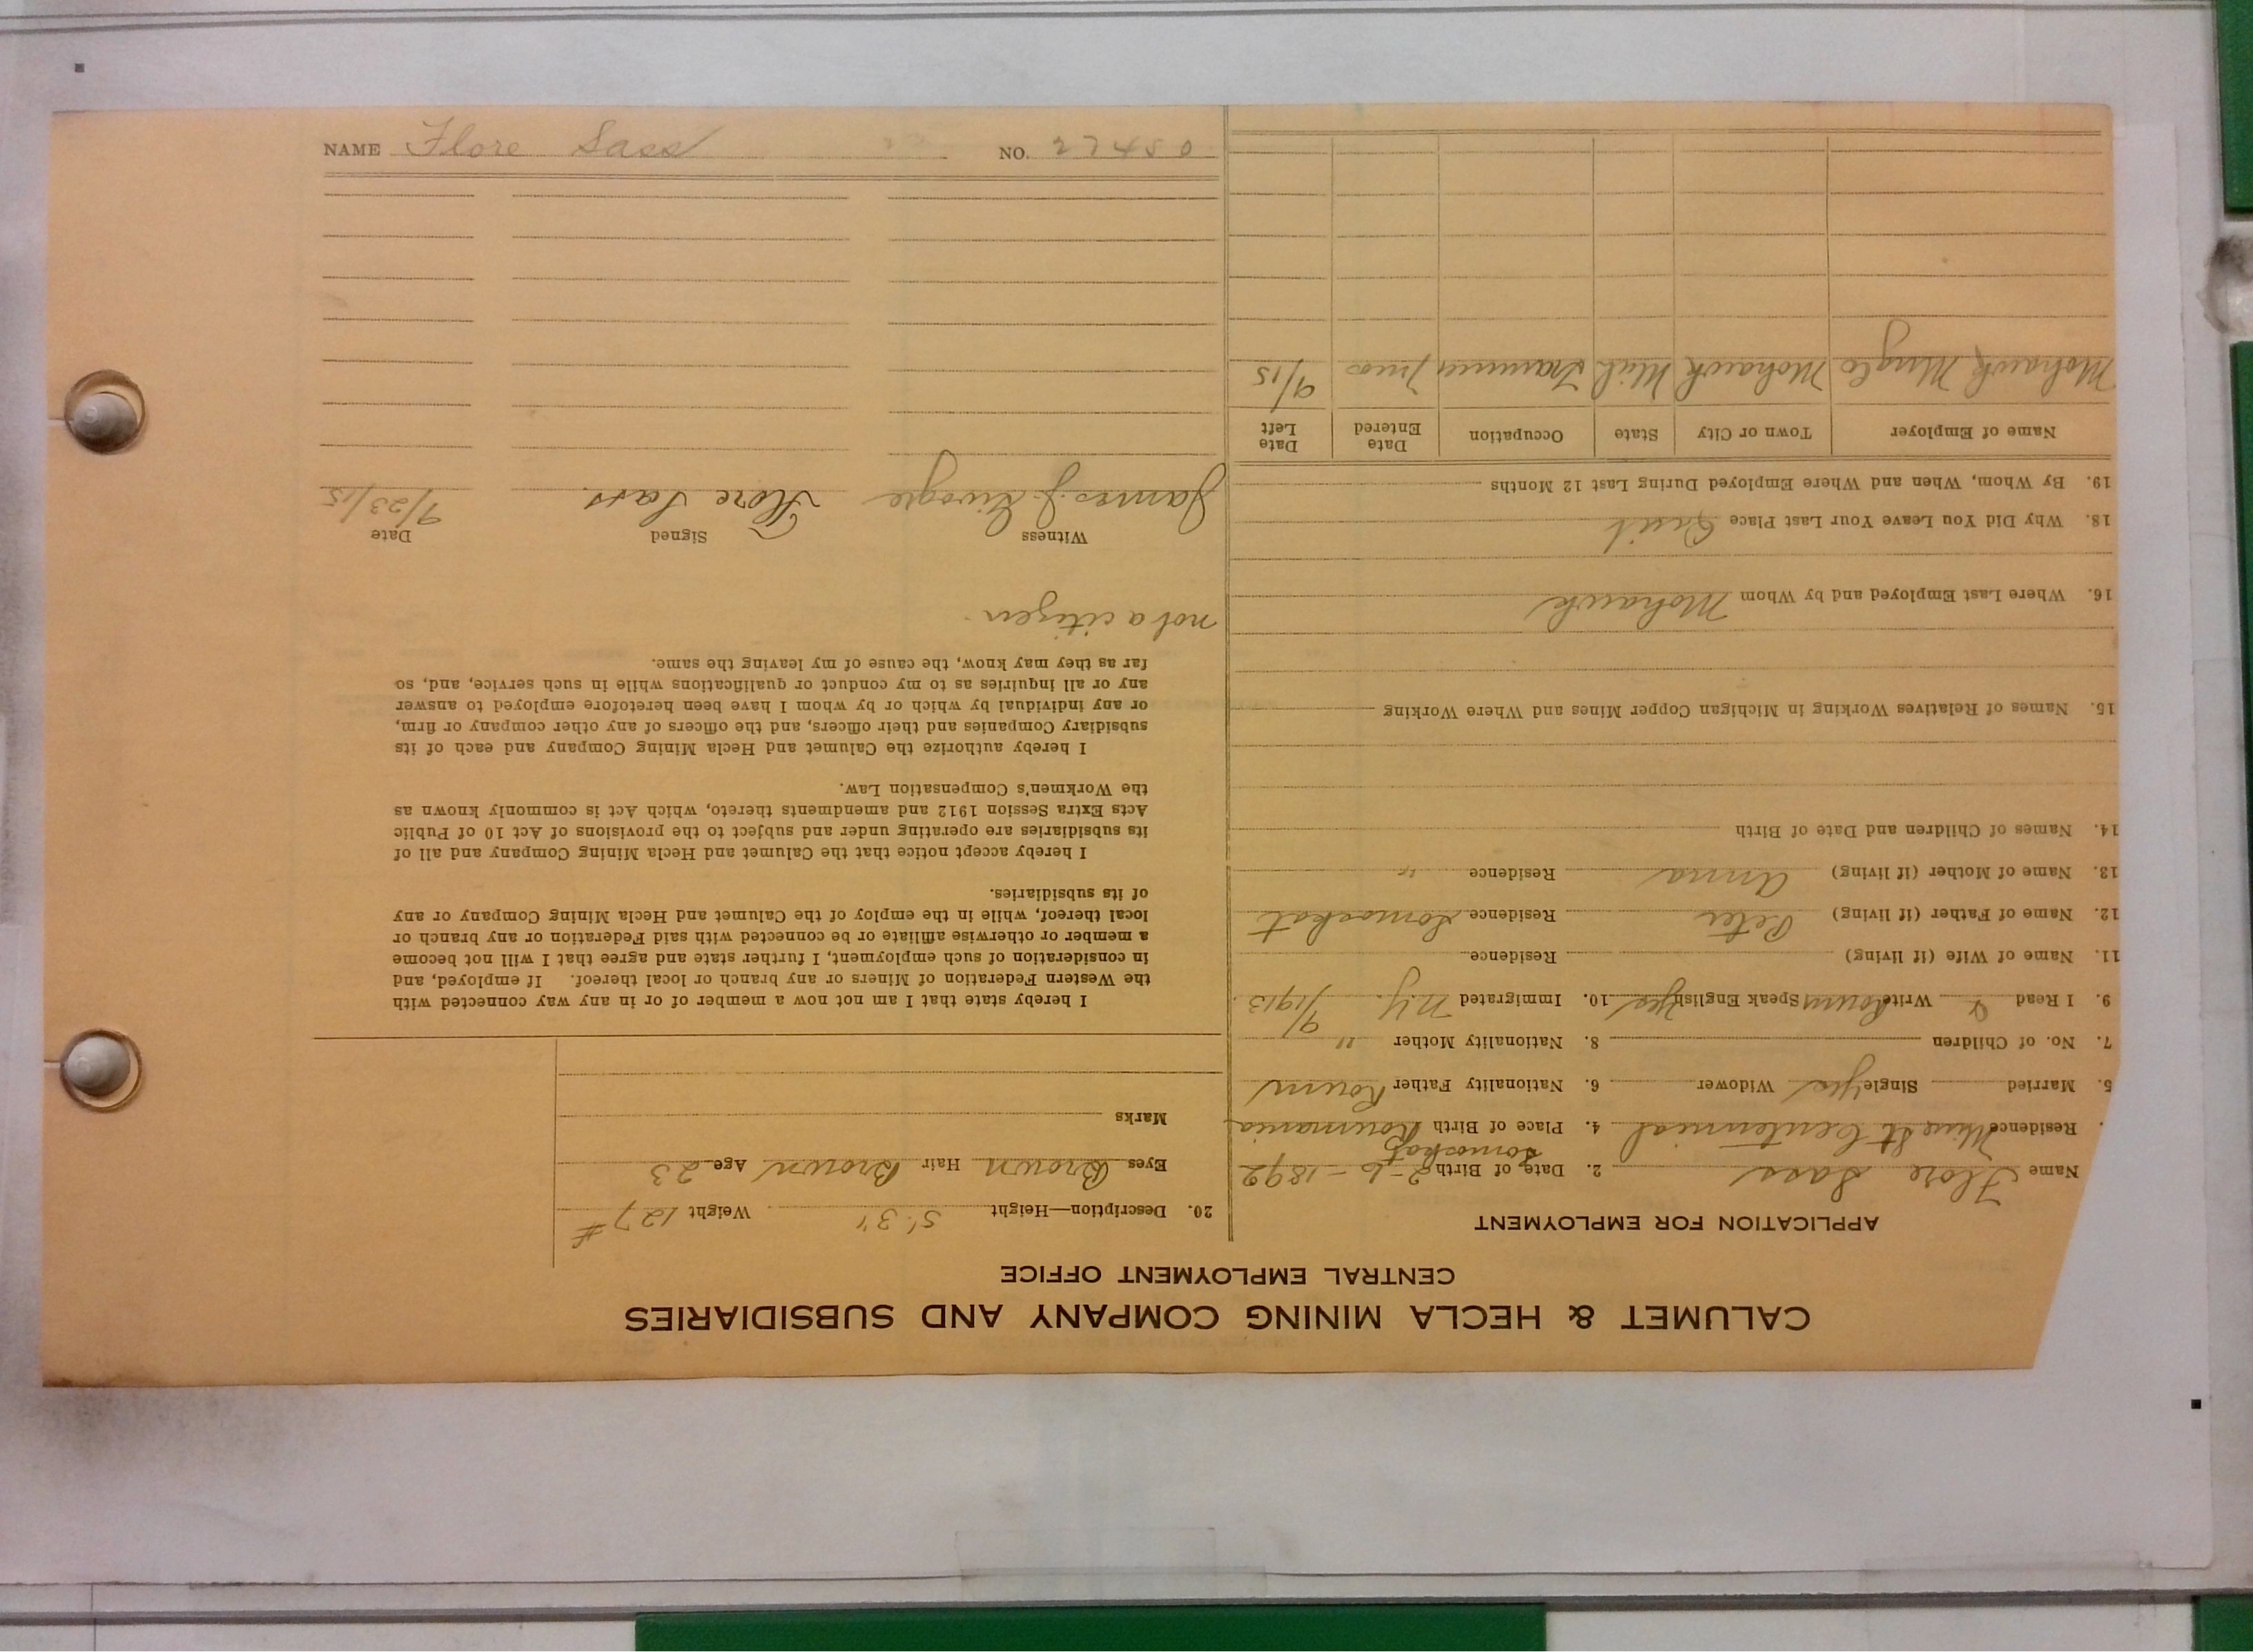 CALUMET & HECLA MINING COMPANY AND SUBSIDIARIES
CENTRAL EMPLOYMENT OFFICE
APPLICATION FOR EMPLOYMENT
Name Flore Sass 2. Date of Birth 2-6-1892
Somoskat
Residence Mine St Centennial 4. Place of Birth Roumania
5. Married Single Yes Widower 6. Nationality Father Roum
7. No. of Children 8. Nationality Mother "
9. I Read & Write Roum Speak English Yes 10. Immigrated N.Y. 9/1913
11. Name of Wife (if living) Residence
12. Name of Father (if living) Peter Residence Somoskat
13. Name of Mother (if living) Anna Residence "
14. Names of Children and Date of Birth
15. Names of Relatives Working in Michigan Copper Mines and Where Working
16. Where Last Employed and by Whom Mohawk
18. Why Did You Leave Your Last Place Quit
19. By Whom, When and Where Employed During Last 12 Months
Name of Employer Town or City State Occupation Date Entered Date Left
Mohawk Mng Co Mohawk Mich Trammer 9/15
20. Description—Height 5' 3" Weight 127 #
Eyes Brown Hair Brown Age 23
Marks
I hereby state that I am not now a member of or in any way connected with
the Western Federation of Miners or any branch or local thereof. If employed, and
in consideration of such employment, I further state and agree that I will not become
a member or otherwise affiliate or be connected with said Federation or any branch or
local thereof, while in the employ of the Calumet and Hecla Mining Company or any
of its subsidiaries.
I hereby accept notice that the Calumet and Hecla Mining Company and all of
its subsidiaries are operating under and subject to the provisions of Act 10 of Public
Acts Extra Session 1912 and amendments thereto, which Act is commonly known as
the Workmen's Compensation Law.
I hereby authorize the Calumet and Hecla Mining Company and each of its
subsidiary Companies and their officers, and the officers of any other company or firm,
or any individual by which or by whom I have been heretofore employed to answer
any or all inquiries as to my conduct or qualifications while in such service, and, so
far as they may know, the cause of my leaving the same.
not a citizen
Witness Signed Date
James J. Flore Sass. 9/23/15
NAME Flore Sass NO. 27450